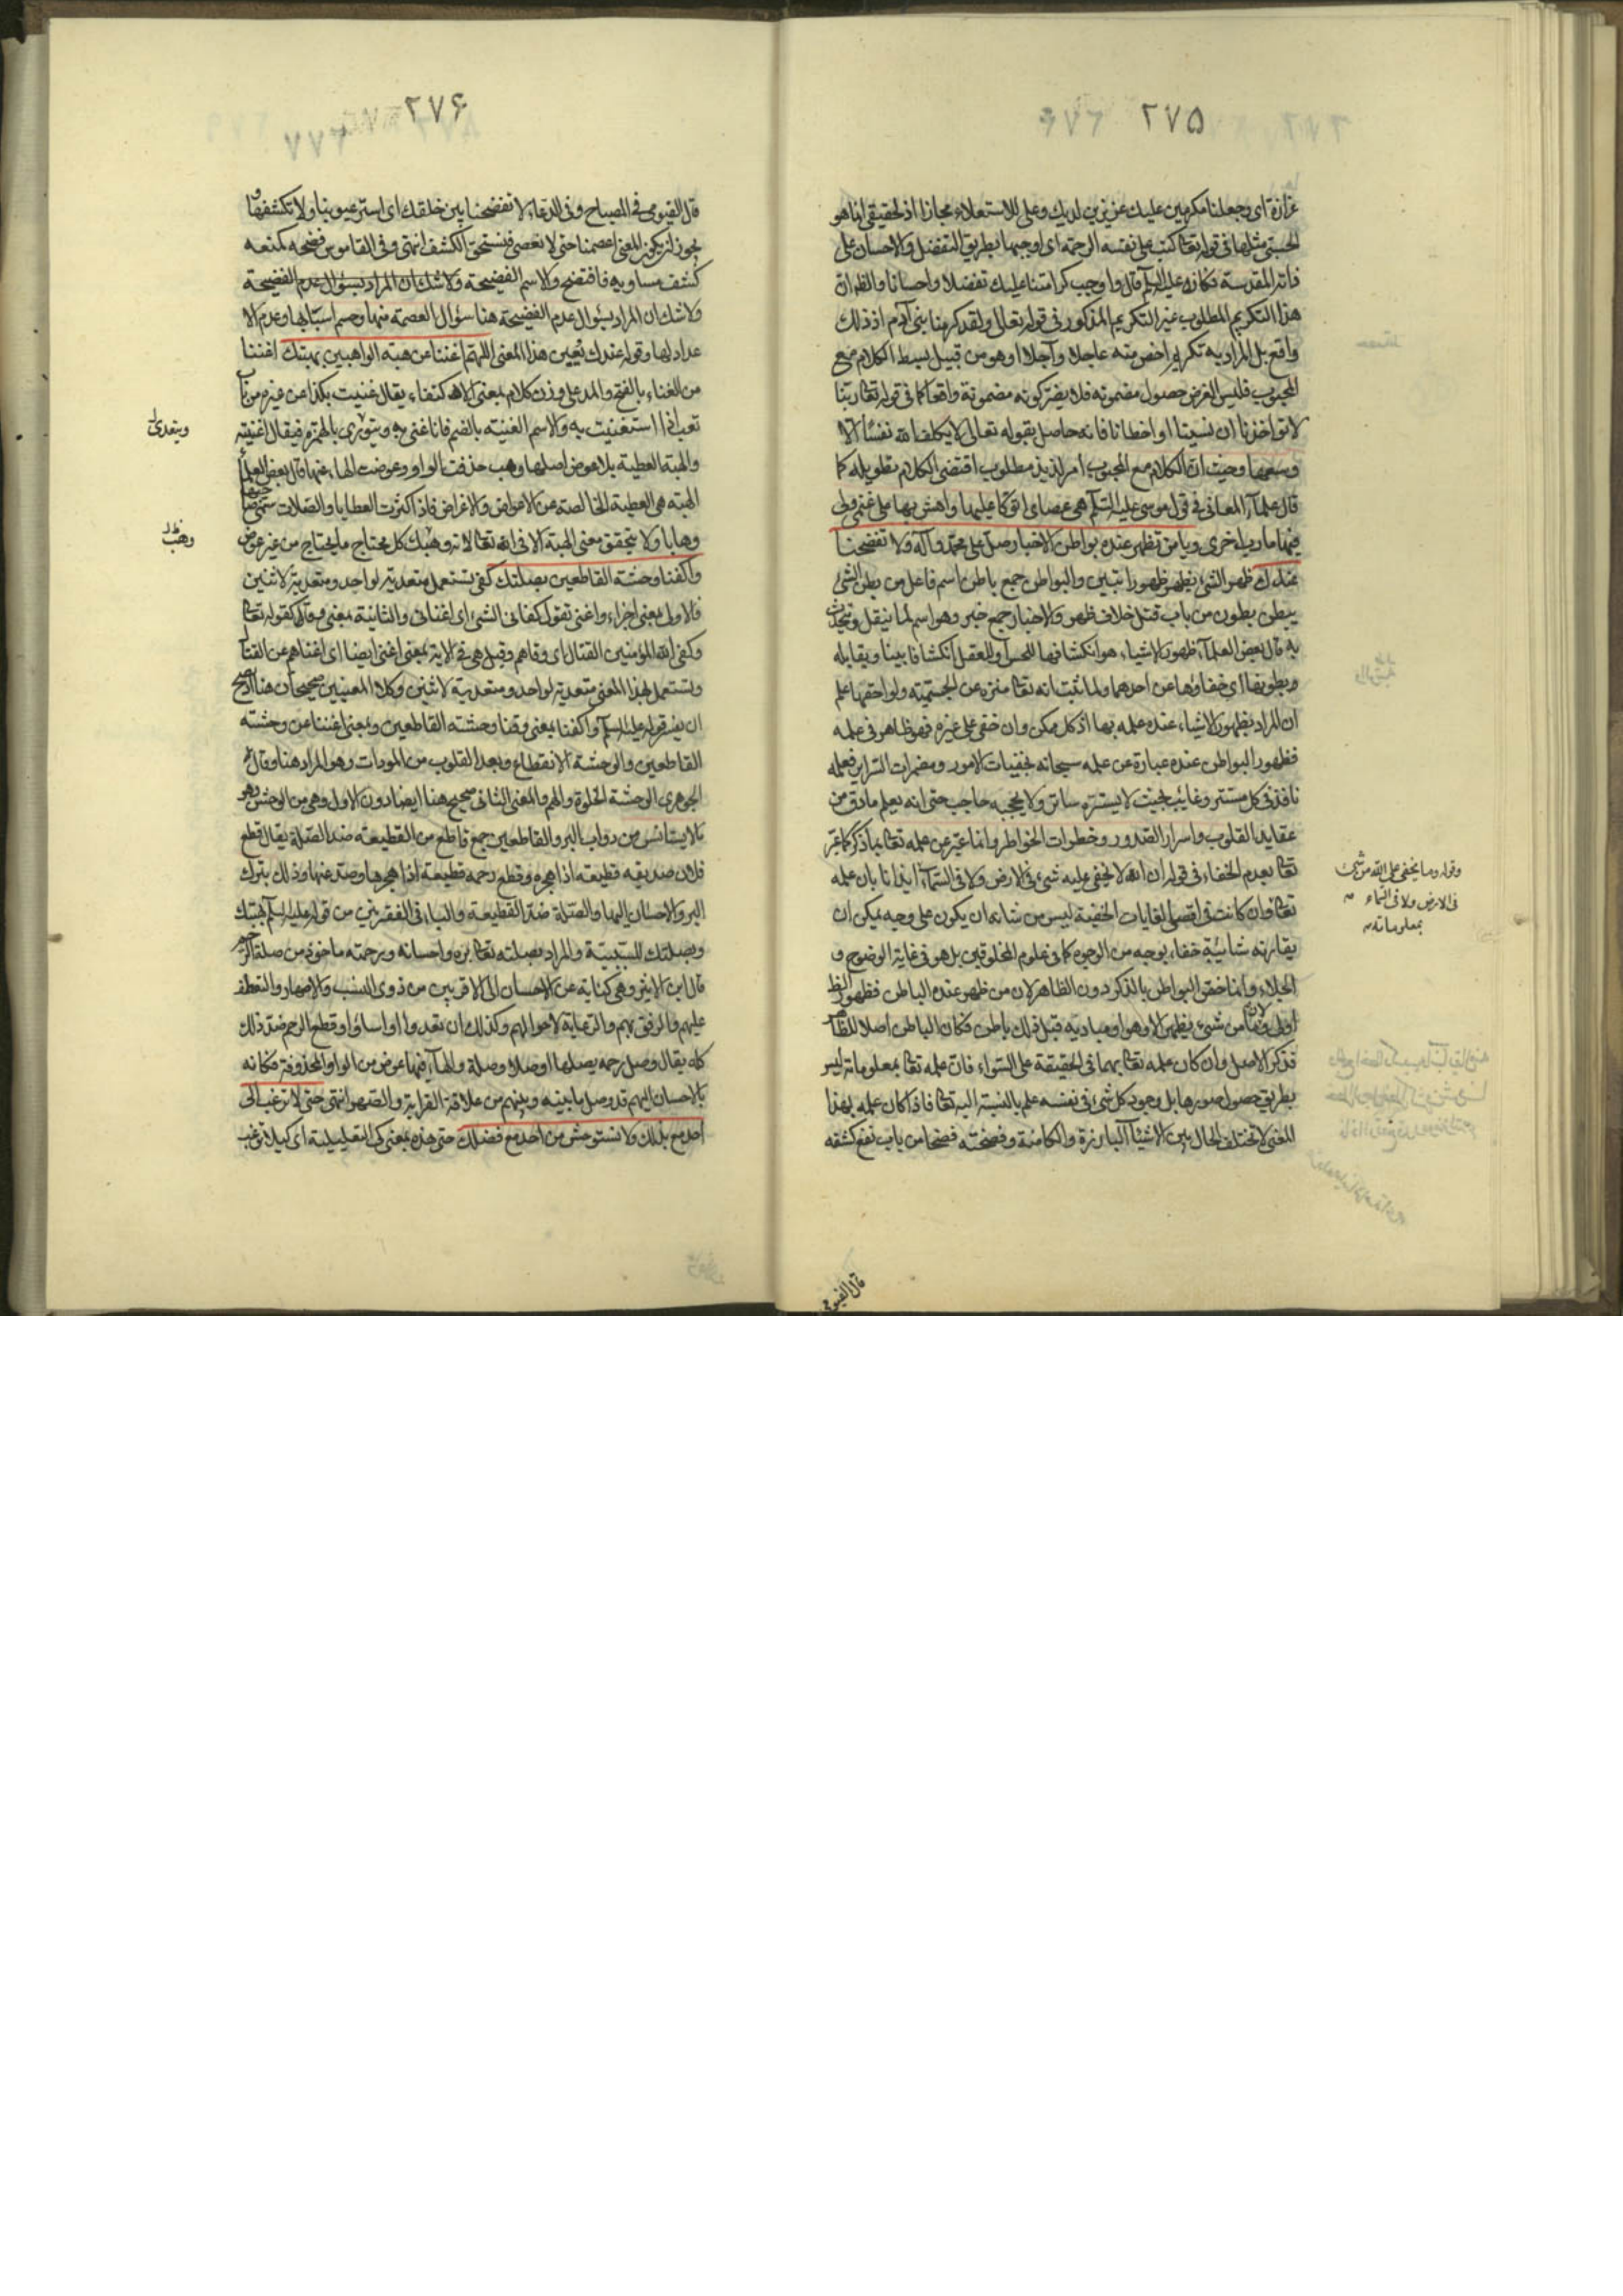 ٢٧٥
عزازة اى وجعلنا مكرمين عليك عزيزين لديك وعلى للاستعلاء مجازا اذ الحقيقى انما هو
الحسى مثلها فى قوله تعا كتب على نفسه الرحمة اى اوجبها بطريق التفضل والاحسان على
ذاته المقدسة فكانه عليه السلم قال واوجب كرامتنا عليك تفضلا واحسانا والظ ان
هذا التكريم المطلوب غير التكريم المذكور فى قوله تعالى ولقد كرمنا بنى آدم اذ ذلك
واقع بل المراد به تكريم اخص منه عاجلا وآجلا او هو من قبيل بسط الكلام مع
المحبوب فليس الغرض حصول مضمونه فلا يضر كونه مضمونه واقعا كما فى قوله تعا ربنا
لا تواخذنا ان نسينا او اخطانا فانه حاصل بقوله تعالى لا يكلف الله نفسا الا
وسعها وحيث ان الكلام مع المحبوب امر لذيذ مطلوب اقتضى الكلام تطويله كما
قال علمآء المعانى فى قول موسى عليه السلم هى عصاى اتوكا عليها واهش بها على غنمى ولى
فيها مارب اخرى ويا من تظهر عنده بواطن الاخبار صل على محمد وآله ولا تفضحنا
عندك ظهر الشئ يظهر ظهورا تبين والبواطن جمع باطن اسم فاعل من بطن الشئ
يبطن بطون من باب قتل خلاف ظهر والاخبار جمع خبر وهو اسم لما ينقل ويتحدث
به قال بعض العلمآء ظهور الاشياء هو انكشافها للحس او للعقل انكشافا بينا ويقابله
وبطونها اى خفاؤها عن احدهما ولما ثبت انه تعا منزه عن الجسمية ولواحقها علم
ان المراد بظهور الاشياء عنده علمه بها اذ كل ممكن وان خفى على غيره فهو ظاهر فى علمه
فظهور البواطن عنده عبارة عن علمه سبحانه بخفيات الامور ومضمرات السراير فعلمه
نافذ فى كل مستتر وغايب بحيث لا يستره ساتر ولا يحجبه حاجب حتى انه يعلم ما دق من
عقايد القلوب واسرار الصدور وخطرات الخواطر وانما عبر عن علمه تعا بما ذكر كما عبر
تعا بعدم الخفاء فى قوله ان الله لا يخفى عليه شئ فى الارض ولا فى السمآء ايذانا بان علمه
تعا وان كانت فى اقصى الغايات الخفية ليس من شانه ان يكون على وجه يمكن ان
يقارنه شائبة خفاء بوجه من الوجوه كما فى علوم المخلوقين بل هو فى غاية الوضوح و
الجلاء وانما خص البواطن بالذكر دون الظاهر لان من ظهر عنده الباطن فظهور الظ
اولى ولانه ما من شئ يظهر الا وهو او مباديه قبل ذلك باطن فكان الباطن اصلا للظاهر
فذكر الاصل وان كان علمه تعا بهما فى الحقيقة على السواء فان علمه تعا بمعلوماته ليس
بطريق حصول صورها بل وجود كل شئ فى نفسه علم بالنسبة اليه تعا فاذا كان علمه بهذا
المعنى لا تختلف الحال بين الاشيآء البارزة والكامنة وفضحته فضحا من باب نفع كشفه
وقوله وما يخفى على الله من شئ
فى الارض ولا فى السماء
بمعلوماته
قال الفيومى
٢٧۶
قال الفيومى فى المصباح وفى الدعاء لا تفضحنا بين خلقك اى استر عيوبنا ولا تكشفها و
يجوز ان يكون المعنى اعصمنا حتى لا نعصى فنستحق الكشف انتهى وفى القاموس فضحه كمنعه
كشف مساويه فافتضح والاسم الفضيحة ولا شك ان المراد بسؤال عدم الفضيحة
ولا شك ان المراد بسؤال عدم الفضيحة هنا سؤال العصمة منها وحسم اسبابها وعدم الا
عداد لها وقوله عندك تعيين هذا المعنى اللهم اغننا عن هبة الواهبين بهبتك اغننا
من الغناء بالفتح والمد على وزن كلام بمعنى الاكتفاء يقال غنيت بكذا عن غيره من باب
تعب اذا استغنيت به والاسم الغنية بالضم فانا غنى به ويتعدى بالهمزة فيقال اغنيته
والهبة العطية بلا عوض اصلها وهب حذفت الواو وعوضت الهاء عنها قال بعض العلمآء
الهبة هى العطية الخالصة عن الاعواض والاغراض فاذا كثرت العطايا والصلات سمى صاحبها
وهابا ولا يتحقق معنى الهبة الا فى الله تعا لانه وهبك كل محتاج ما يحتاج من غير عوض
واكفنا وحشة القاطعين بصلتك كفى تستعمل متعدية لواحد ومتعدية لاثنين
فالاولى بمعنى اجزاء واغنى تقول كفانى الشئ اى اغنانى والثانية بمعنى وقى كقوله تعا
وكفى الله المؤمنين القتال اى وقاهم وقيل هى فى الاية بمعنى اغنى ايضا اى اغناهم عن القتال
وتستعمل بهذا المعنى متعدية لواحد ومتعدية لاثنين وكلا المعنيين صحيحان هنا اذ يصح
ان يفسر قوله عليه السلم واكفنا بمعنى وقنا وحشة القاطعين وبمعنى اغننا عن وحشته
القاطعين والوحشة الانقطاع وبعد القلوب من المودات وهو المراد هنا وقال
الجوهرى الوحشة الخلوة والهم والمعنى الثانى صحيح هنا ايضا دون الاول وهى من الوحش وهو
ما لا يستانس من دواب البر والقاطعين جمع قاطع من القطيعة ضد الصلة يقال قطع
فلان صديقه قطيعة اذا هجره وقطع رحمه قطيعة اذا هجرها وصد عنها وذلك بترك
البر والاحسان اليها والصلة ضد القطيعة والباء فى الفقرتين من قوله عليه السلم بهبتك
وبصلتك للسببية والمراد بصلته تعا بره واحسانه وبرحمته ماخوذ من صلة الرحم
قال ابن الاثير وهى كناية عن الاحسان الى الاقربين من ذوى النسب والاصهار والتعطف
عليهم والرفق بهم والرعاية لاحوالهم وكذلك ان بعدوا او اساؤا وقطع الرحم ضد ذلك
كله يقال وصل رحمه يصلها وصلا وصلة والهآء فيها عوض من الواو المحذوفة فكانه
بالاحسان اليهم قد وصل ما بينه وبينهم من علاقة القرابة والصهر انتهى حتى لا نرغب الى
احد مع بذلك ولا نستوحش من احد مع فضلك حتى هذه بمعنى كى التعليلية اى كيلا نرغب
ويتعدى